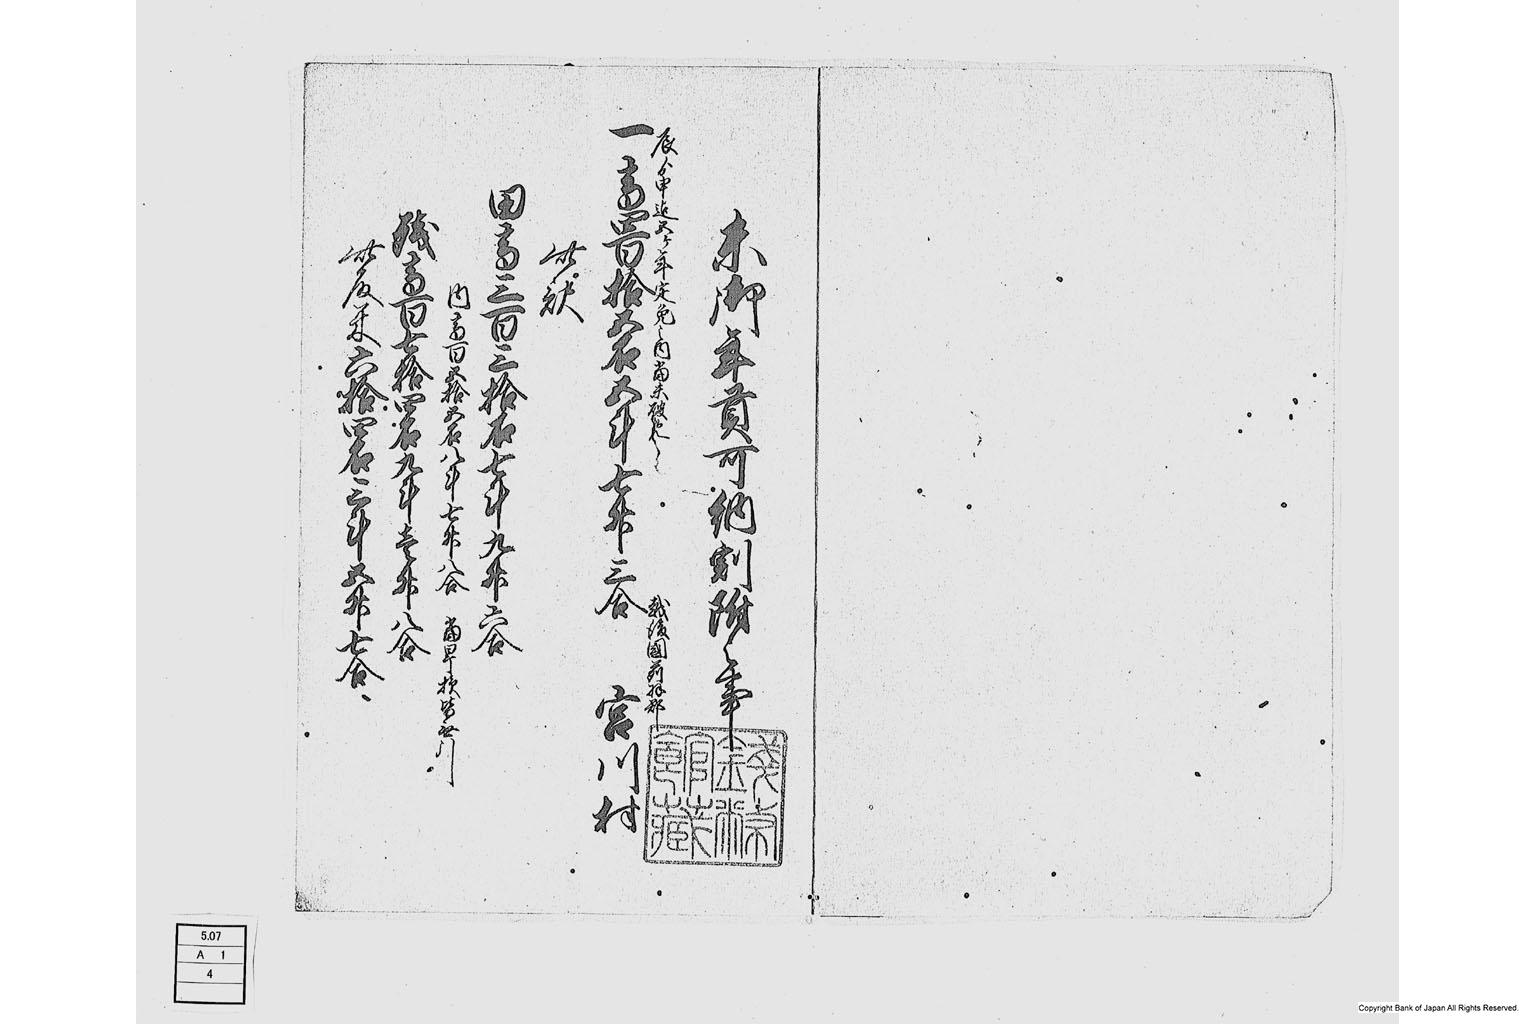 未御年貢可納割附之事
辰ゟ申迄五ヶ年定免之内当未破免
越後国苅羽郡
一高四百拾五石五斗七升三合 宮川村
此訳
田高三百三拾石七斗九升六合
内高百五拾五石八斗七升八合 当旱損皆無引
残高百七拾四石九斗壱升八合
此反米六拾四石三斗五升七合
銭幣館蔵
5.07
A 1
4
Copyright Bank of Japan All Rights Reserved.